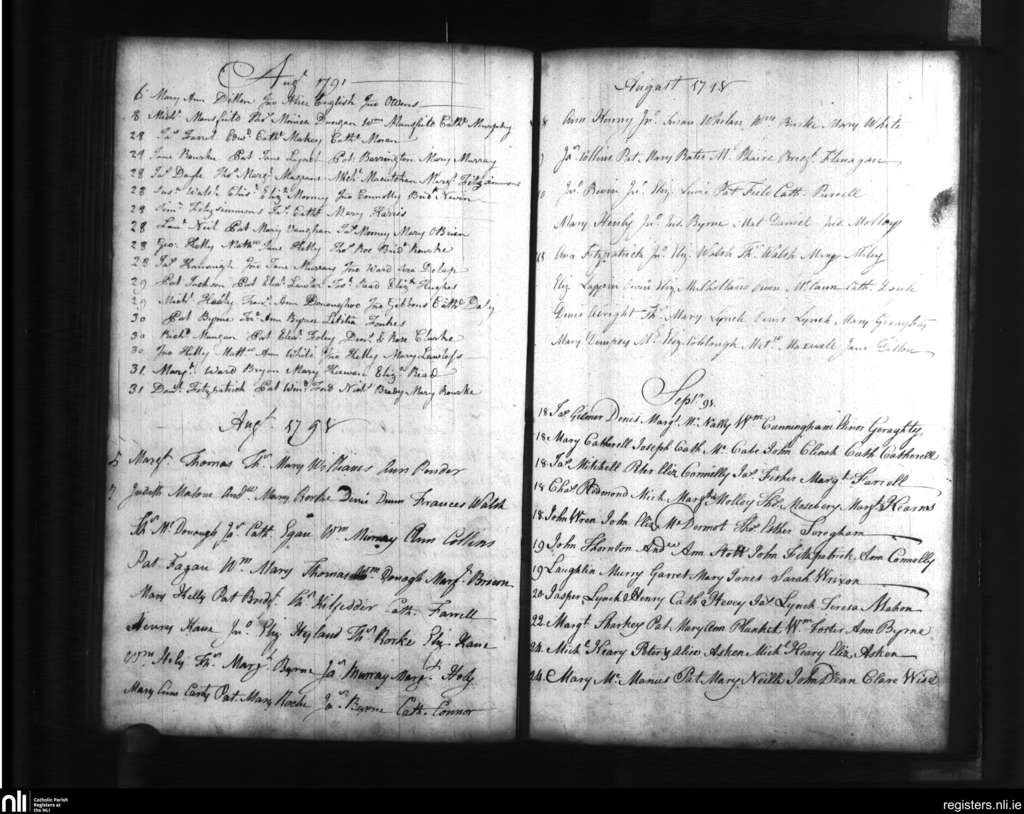 Augt. 1791
6 Mary Ann Dillon Jno Alice English Jno Owens
8 Michl. Mansfield Thos. Monica Duncan Wm Mansfield Cathe. Murphy
28 Jas. Farrel Edwd. Cathe. Makey Cathe. Moran
29 Jane Rourke Pat Jane Lynch Pat Barrington Mary Murray
28 Jas. Doyle Thos. Margt. Michl. Margt. Fitzsimmons
28 Susa. Walsh Chrisr. Eliza. Mooney Jno Connolly Bridt. Nevin
28 Simn. Fitzsimmons Jas. Cathe. Mary Harris
28 Laue. Neil Pat Mary Vaughan Jas. Mooney Mary O'Brien
28 Geo. Kelly Matt. Jane Kelly Thos. Roe Bridt. Rourke
28 Jas. Kavanagh Jno Jane Murray Jno Ward Ann
29 Pat Jackson Pat Elea. Lawlor Jas. Read Eliza. Hughes
29 Michl. Ann Donaughoe Jno Gibbons Cathe. Daly
30 Pat Byrne Frs. Ann Byrne Letitia
30 Michl. Mangan Pat Elea. Foley Denis. & Rose Clarke
30 Jno Kelly Matt. Ann White Jno Kelly Mary Lawless
31 Margt. Ward Bryan Mary Eliza. Read
31 Danl. Fitzpatrick Pat Wind. Ford Nichs. Brady Mary Rourke
Augt. 1798
5 Margt. Thomas Ths. Mary Williams Ann Pender
7 Judith Malone Andw. Mary Rorke Denis Dunn Frances Walsh
Ths. Mc. Donough Jas. Cath. Egan Wm. Murray Ann Collins
Pat Fagan Wm. Mary Thomas Wm Donagh Margt. Brown
Mary Kelly Pat Bridgt. Ths. Cath. Farrell
Henry Kane Jno. Eliz Hyland Ths. Rorke Eliz. Kane
Wm. Holy Ths. Margt. Byrne Jas. Murray Margt. Holy
Mary Anne Pat. Mary Roche Jas. Byrne Cath. Connor
August 1798
8 Ann Henry Jno. Susan Whelan Wm Burke Mary White
9 Jas. Collins Pat. Mary Bates Ml. Bridgt. Flanagan
Jno. Jno. Eliz. Pat Cath. Purcell
Mary Jno. Jud. Byrne Mat Daniel Jud. Molloy
Ann Fitzpatrick Jno. Eliz Walsh Ths. Walsh Margt
Eliz Owin Eliz Mulholland Owen McCann Cath Doyle
Denis Wright Ths. Mary Lynch Denis Lynch Mary Geraghty
Mary Dempsey Ml. Eliz Matw. Maxwell Jane
Septr. 98.
18 Jas Gilmer Denis Margt. Mc. Nally Wm Cunningham Honor Geraghty
18 Mary Catherell Joseph Cath Mc. Cabe John Clinch Cath Catherell
18 Jas. Mitchell Peter Eliz Connelly Jas. Fisher Margt. Farrell
18 Chas. Redmond Mich Margt. Molloy Thos. Mosebery Margt. Kearns
18 John Wren John Eliz McDermot Thos. Esther Soreghan
19 John Thornton Andw Ann Stott John Fitzpatrick Ann Connolly
19 Laughlin Murry Garret Mary Jones Sarah Wrixon
20 Jasper Lynch Henry Cath Hevey Jas Lynch Teresa Mahon
22 Margt. Sharkey Pat. Mary Ann Plunket Wm. Porter Ann Byrne
24 Michl. Keary Peter & Alice Askon Mich. Keary Eliz. Askon
24 Mary Mc. Manus Pat. Mary Neille John Dean Clare Wise
nli Catholic Parish Registers at the NLI
registers.nli.ie